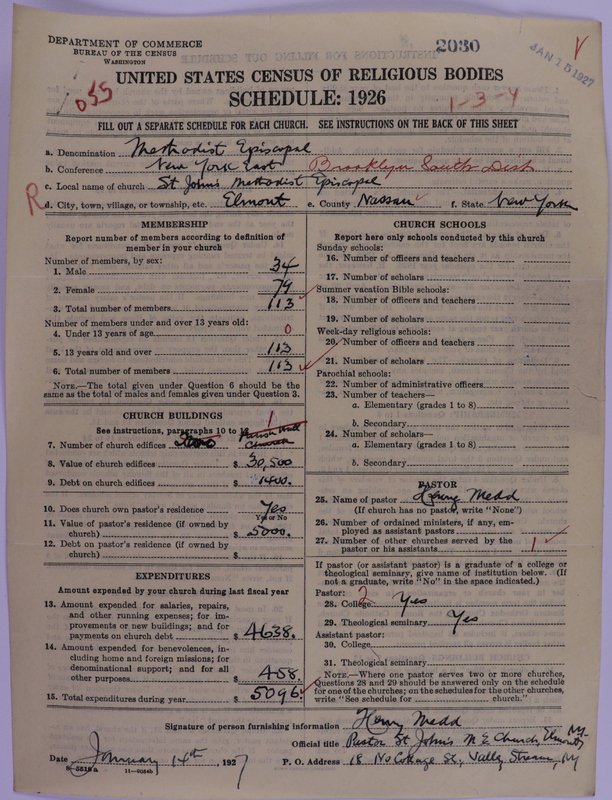 DEPARTMENT OF COMMERCE
BUREAU OF THE CENSUS
WASHINGTON
2030
JAN 15 1927
UNITED STATES CENSUS OF RELIGIOUS BODIES
SCHEDULE: 1926
1-3-4
FILL OUT A SEPARATE SCHEDULE FOR EACH CHURCH. SEE INSTRUCTIONS ON THE BACK OF THIS SHEET
a. Denomination Methodist Episcopal
b. Conference New York East Brooklyn South Dist
c. Local name of church St Johns Methodist Episcopal
R d. City, town, village, or township, etc. Elmont e. County Nassau f. State New York
MEMBERSHIP
Report number of members according to definition of
member in your church
Number of members, by sex:
1. Male 34
2. Female 79
3. Total number of members 113
Number of members under and over 13 years old:
4. Under 13 years of age 0
5. 13 years old and over 113
6. Total number of members 113
NOTE.—The total given under Question 6 should be the
same as the total of males and females given under Question 3.
CHURCH BUILDINGS
See instructions, paragraphs 10 to
1
7. Number of church edifices Parish Hall Church
8. Value of church edifices $ 30,500
9. Debt on church edifices $ 1400.
10. Does church own pastor's residence Yes
Yes or No
11. Value of pastor's residence (if owned by
church) $ 5000.
12. Debt on pastor's residence (if owned by
church) $
EXPENDITURES
Amount expended by your church during last fiscal year
13. Amount expended for salaries, repairs,
and other running expenses; for im-
provements or new buildings; and for
payments on church debt $ 4638.
14. Amount expended for benevolences, in-
cluding home and foreign missions; for
denominational support; and for all
other purposes $ 458.
15. Total expenditures during year $ 5096.
CHURCH SCHOOLS
Report here only schools conducted by this church
Sunday schools:
16. Number of officers and teachers
17. Number of scholars
Summer vacation Bible schools:
18. Number of officers and teachers
19. Number of scholars
Week-day religious schools:
20. Number of officers and teachers
21. Number of scholars
Parochial schools:
22. Number of administrative officers
23. Number of teachers—
a. Elementary (grades 1 to 8)
b. Secondary
24. Number of scholars—
a. Elementary (grades 1 to 8)
b. Secondary
PASTOR
25. Name of pastor Henry Medd
(If church has no pastor, write "None")
26. Number of ordained ministers, if any, em-
ployed as assistant pastors
27. Number of other churches served by the
pastor or his assistants 1
If pastor (or assistant pastor) is a graduate of a college or
theological seminary, give name of institution below. (If
not a graduate, write "No" in the space indicated.)
Pastor: 2
28. College Yes
29. Theological seminary Yes
Assistant pastor:
30. College
31. Theological seminary
NOTE.—Where one pastor serves two or more churches,
Questions 28 and 29 should be answered only on the schedule
for one of the churches; on the schedules for the other churches,
write "See schedule for church."
Signature of person furnishing information Henry Medd
Official title Pastor St John's M E Church, Elmont, NY
Date January 14th, 1927 P. O. Address 18 No Cottage St, Valley Stream, NY
8-5519a 11-9054b